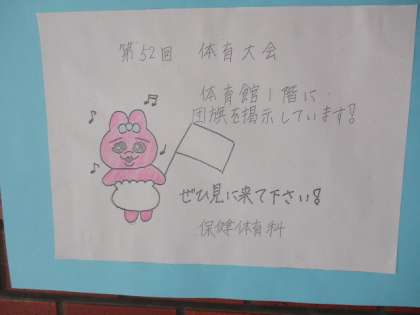 第52回 体育大会
体育館1階に
団旗を掲示しています!
ぜひ見に来て下さい!
保健体育科